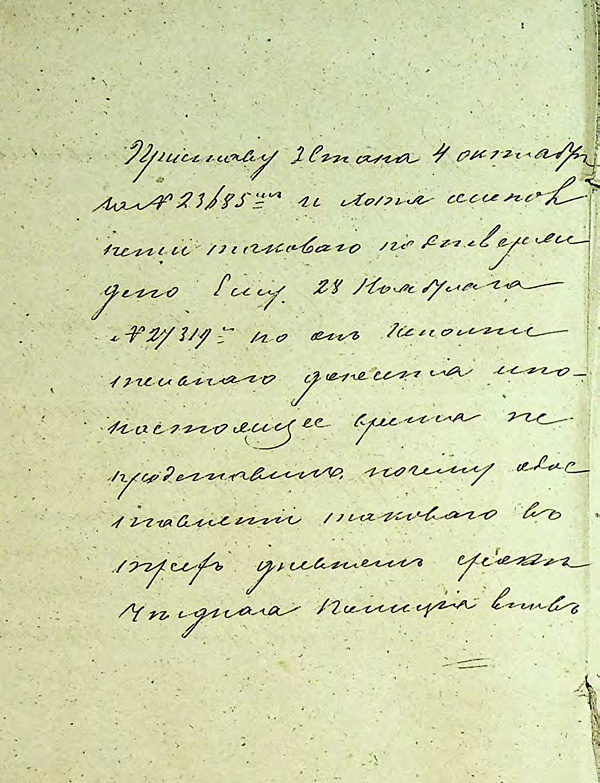 Приставу 3 Стана 4 октября
за № 23685 и хотя о испол
нении таковаго подтверж
дено Ему 28 Ноября за
№ 27319 но онъ исполни
тельнаго донесенія и по
настоящее время не
представилъ, почему о дос
тавленіи таковаго въ
трехъ дневный срокъ
Уѣздная Полиція вновь